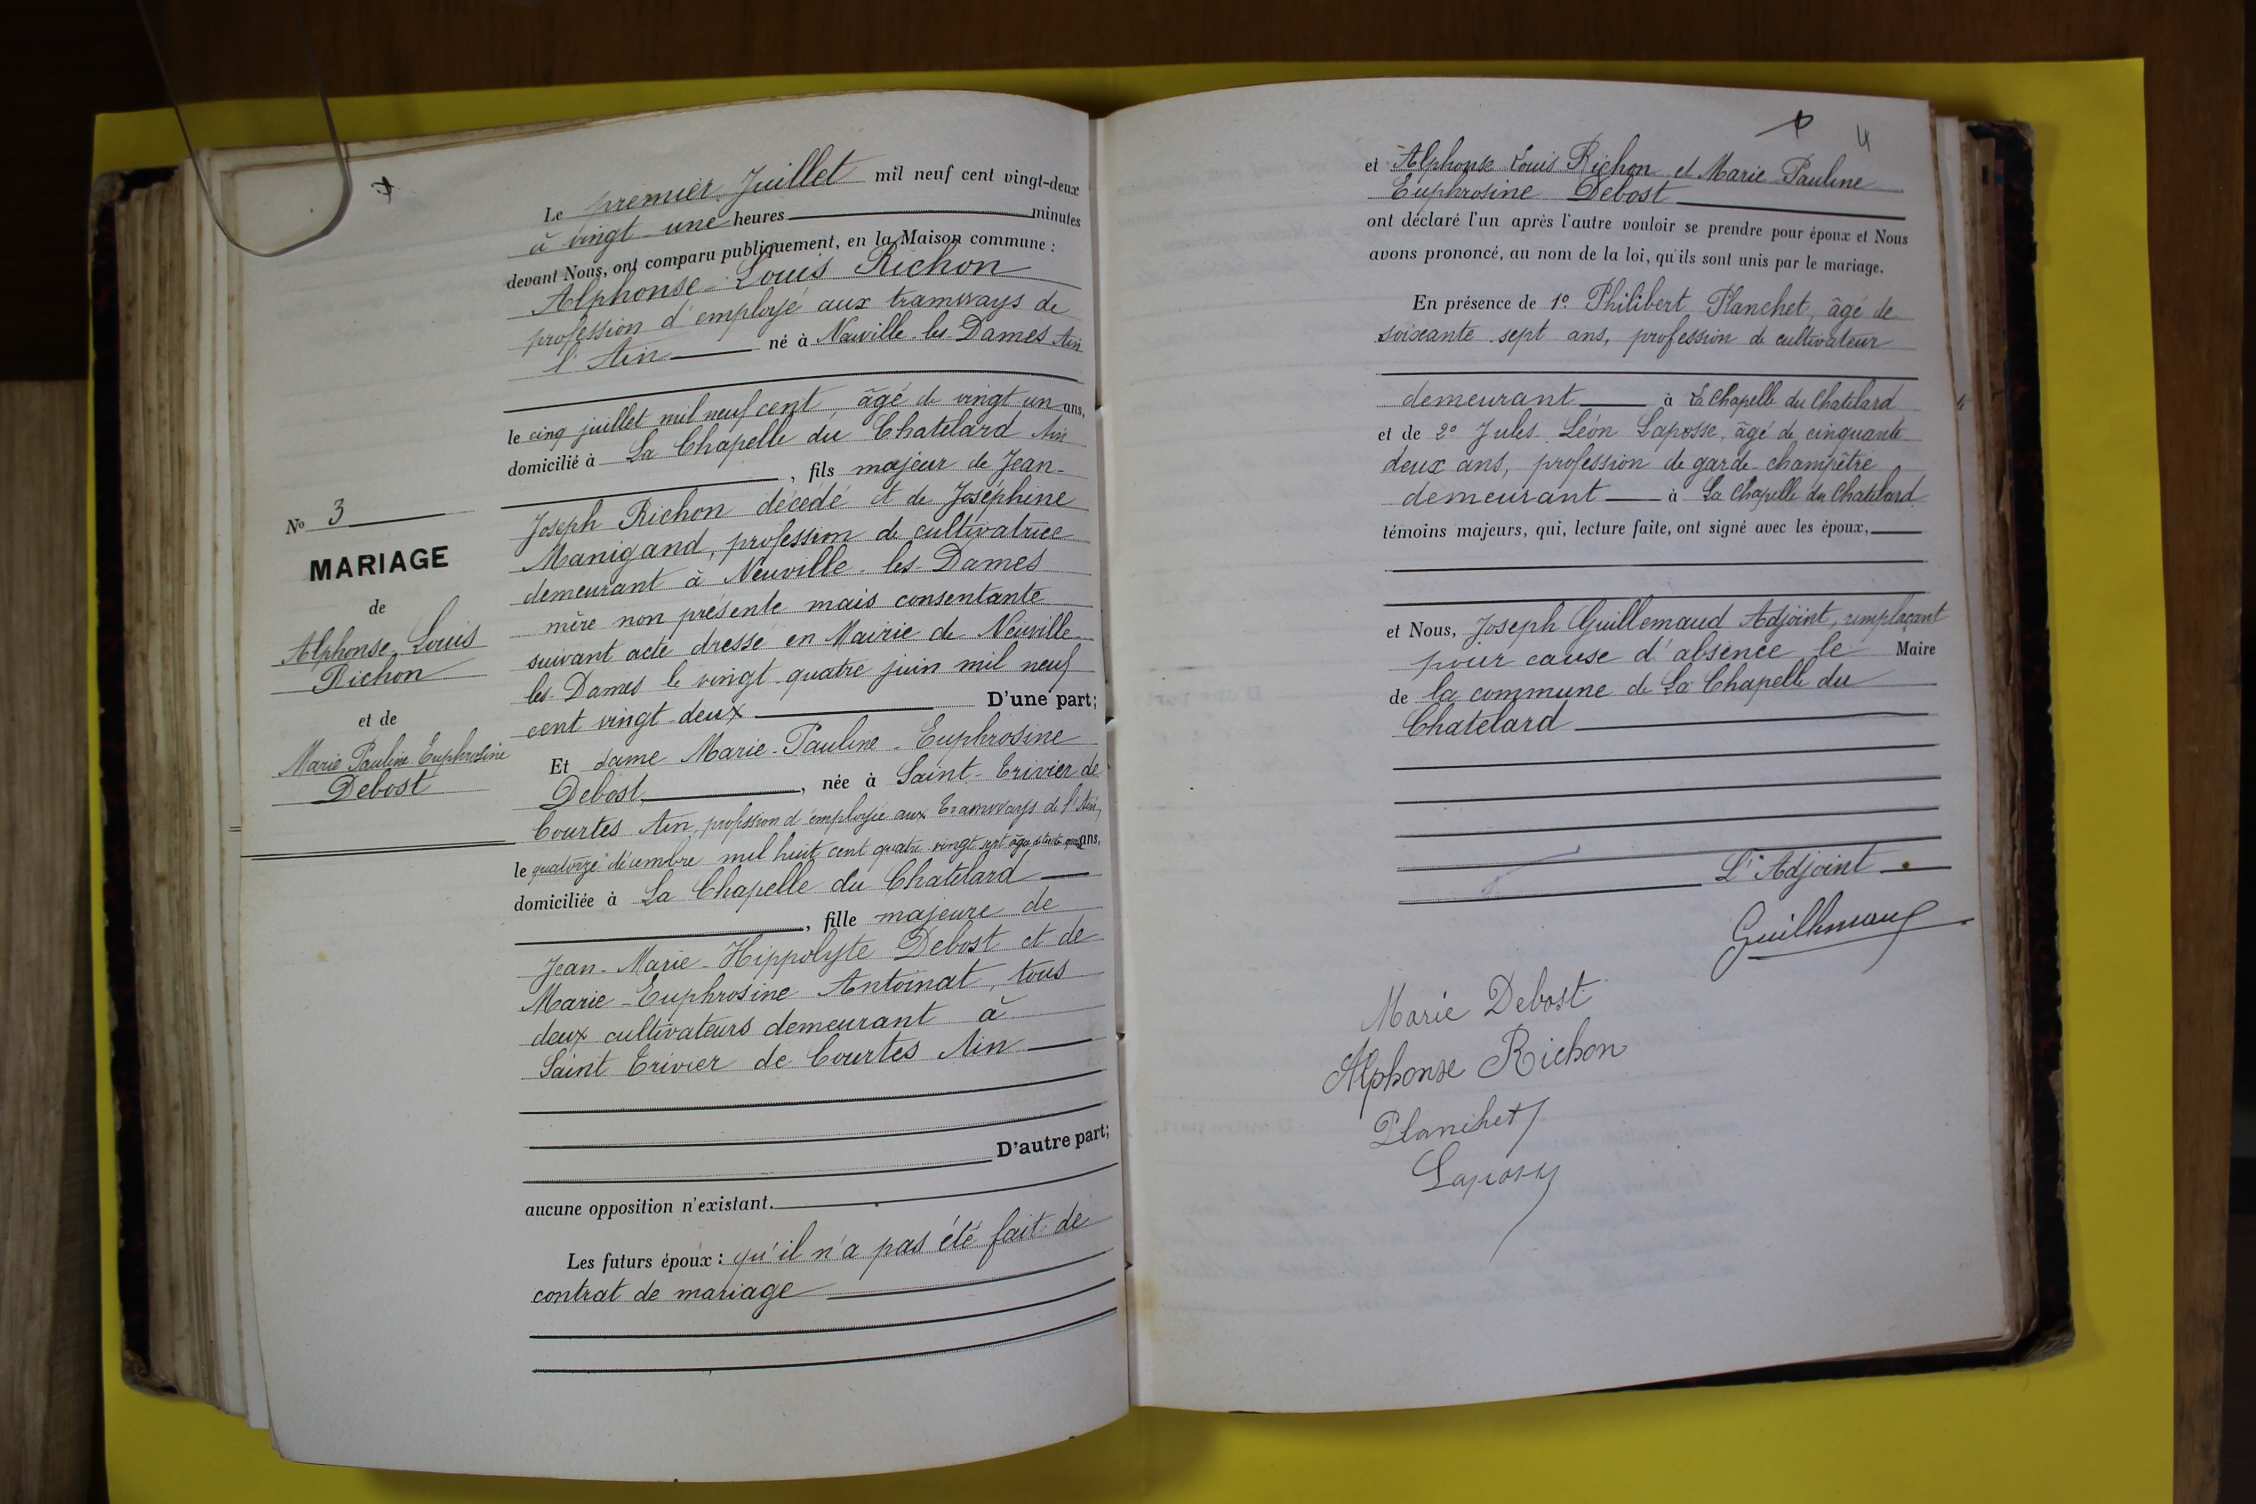 Le premier Juillet mil neuf cent vingt-deux
à vingt une heures minutes
devant Nous, ont comparu publiquement, en la Maison commune :
Alphonse-Louis Richon
profession d'employé aux tramways de
l'Ain né à Neuville-les-Dames Ain
le cinq juillet mil neuf cent, âgé de vingt un ans,
domicilié à La Chapelle du Chatelard Ain
, fils majeur de Jean-
Joseph Richon décédé et de Joséphine
Manigand, profession de cultivatrice
demeurant à Neuville-les-Dames
mère non présente mais consentante
suivant acte dressé en Mairie de Neuville
les Dames le vingt-quatre juin mil neuf
cent vingt-deux D'une part;
Et dame Marie-Pauline-Euphrosine
Debost, née à Saint-Trivier de
Courtes Ain, profession d'employée aux Tramways de l'Ain,
le quatorze décembre mil huit cent quatre-vingt sept âgée de trente quatre ans,
domiciliée à La Chapelle du Chatelard
, fille majeure de
Jean-Marie-Hippolyte Debost et de
Marie-Euphrosine Antoinat, tous
deux cultivateurs demeurant à
Saint Trivier de Courtes Ain
D'autre part;
aucune opposition n'existant.
Les futurs époux : qu'il n'a pas été fait de
contrat de mariage
No 3
MARIAGE
de
Alphonse Louis
Richon
et de
Marie Pauline Euphrosine
Debost
4
et Alphonse Louis Richon et Marie Pauline
Euphrosine Debost
ont déclaré l'un après l'autre vouloir se prendre pour époux et Nous
avons prononcé, au nom de la loi, qu'ils sont unis par le mariage.
En présence de 1º Philibert Planchet, âgé de
soixante sept ans, profession de cultivateur
demeurant à La Chapelle du Chatelard
et de 2º Jules Léon Laposse, âgé de cinquante
deux ans, profession de garde-champêtre
demeurant à La Chapelle du Chatelard
témoins majeurs, qui, lecture faite, ont signé avec les époux,
et Nous, Joseph Guillemaud Adjoint, remplaçant
pour cause d'absence le Maire
de la commune de La Chapelle du
Chatelard
L'Adjoint
Guillemaud
Marie Debost
Alphonse Richon
Planchet